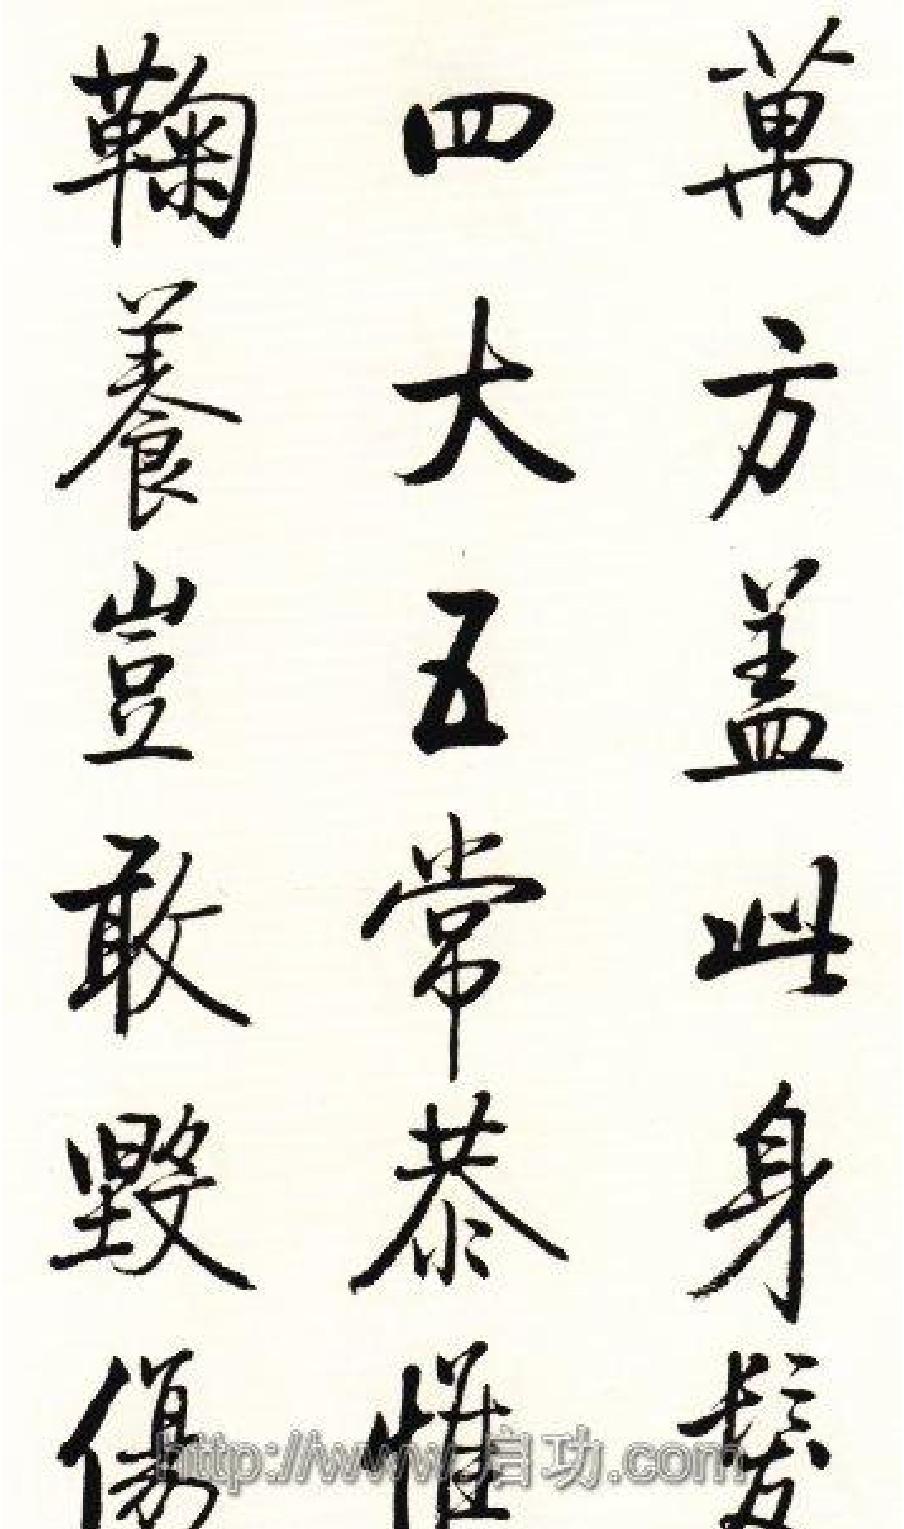 萬方蓋此身髮
四大五常恭惟
鞠養豈敢毀傷
http://www.启功.com